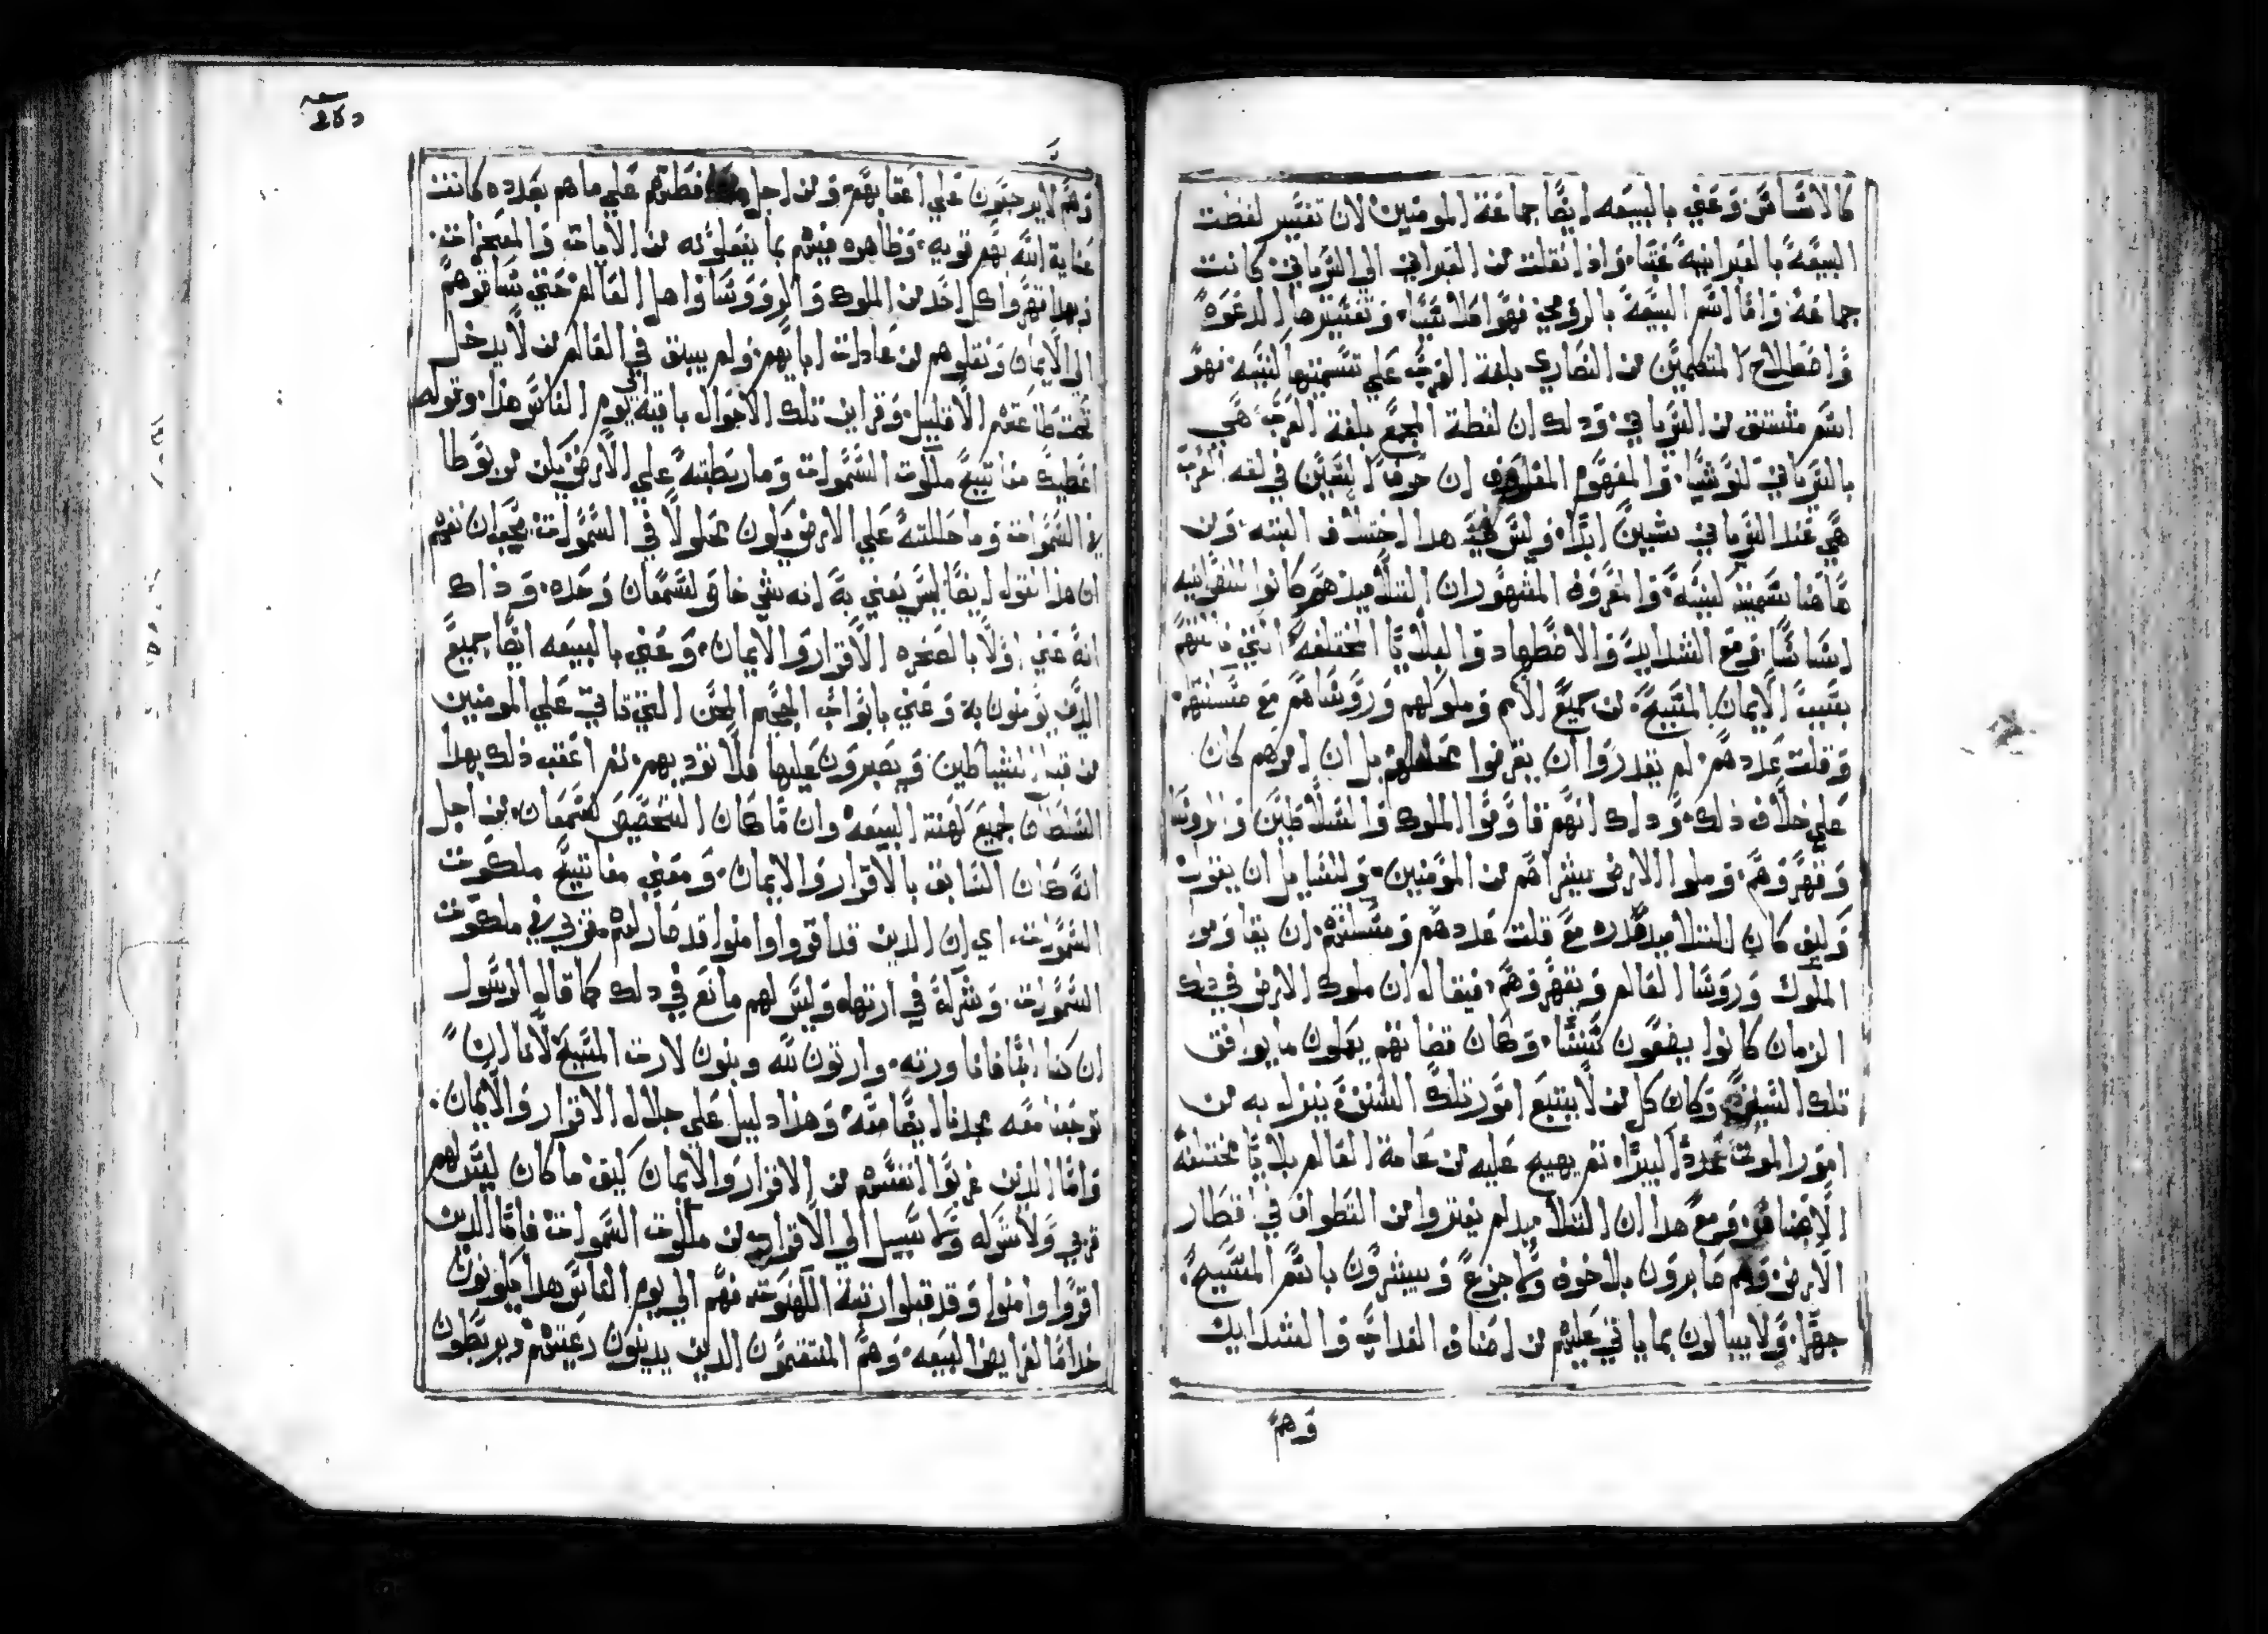 كالاساس وعني بالبيعه ايضا جماعة المومنين لان تفسير لفظت
البيعة بالعبرانية عتبا واذا انقلت من العبراني الي السرياني كانت
جماعة واما اسم البيعة بالرومي فهو اقلاسيا وتفسيرها الدعوة
واصطلاح المتكلمين من النصاري بلغة العرب علي تسميتها كنيسه فهو
اسم مشتق من السرياني وذلك ان لفظة المجمع بلغة العرب هي
بالسرياني كنوشيا والمفهوم المعلوم ان حرف السين في لغه العرب
هي عند السرياني شين ابدا وليس في هدا اختلاف البته ومن
هاهنا سميت كنيسة والمعروف المشهور ان التلاميذ هم كانوا للنصرانيه
اساسا ومع الشدايد والاضطهاد والبلايا المختلفة التي نالتهم
بسبب الايمان بالمسيح من جميع الامم وملوكهم وروساهم مع مسكنتهم
وقلت عددهم لم يقدروا ان يفرغوا بل ان امرهم كان
علي خلاف ذلك وذلك انهم قاوموا الملوك والسلاطين والروسا
وقهروهم وملوا الارض بشراهم من المومنين ولقايل ان يقول
وكيف كان للتلاميد قدره مع قلت عددهم ومسكنتهم ان يقاوموا
الملوك وروسا العالم ويقهروهم فيقال ان ملوك الارض في دلك
الزمان كانوا يضعون سننا وكان قضاتهم يعملون ما يوافق
تلك السنن وكان كل من لا يتبع امور تلك السنن ينزل به من
امور الموت عددا كبيرا تم يهيج عليه من عامة العالم بلايا مختلفة
الاصناف ومع هدا ان التلاميد لم يفتروا من التطواف في اقطار
الارض وهم صابرون بلا خوف ولا جزع ويبشرون باسم المسيح
جهرا ولا يبالون بما ياتي عليهم من اصناف العداب والشدايد
وهم
وهم لا يرجعون علي اعقابهم ومن اجل محافظتهم علي ماهم بصدده كانت
عناية الله بهم قويه وظاهره فيهم بما يفعلونه من الايات والمعجزات
وبهدا قهروا كل احد من الملوك والروسا واهل العالم حتي ساقوهم
الي الايمان ونقلوهم من عادات اباييهم ولم يبق في العالم من لا يدخل
تحت طاعتهم الا قليل وقراين تلك الاحوال باقية الي يوم الناس هذا وقوله
اعطيك مفاتيح ملكوت السموات وما ربطته علي الارض يكن مربوطا
في السموات وما حللته علي الارض يكون محلولا في السموات يجب ان نفهم
ان هذا القول ايضا ليس يعني به انه شي خاص لسمعان وحده وذاك
انه عني اولا بالصخره الاقرار والايمان وعني بالبيعه ايضا جميع
الدين يومنون به وعني بابواب الجحيم المحن التي تاتي علي المومنين
من قبل الشياطين ويصبرون عليها فلا تودبهم تم اعقب ذلك بهدا
السلطان لجميع كهنة البيعة وان ما كان التخصيص لسمعان من اجل
انه كان السابق بالاقرار والايمان ومعني مفاتيح ملكوت
السموات اي ان الدين قد اقروا وامنوا قد صار لهم قربي في ملكوت
السموات وشركة في ارتها وليس لهم مانع في دلك كما قال الرسول
ان كنا ابنا فانا ورثه وارثون لله وبنون لارت المسيح لانا ان
توجعنا معه مجدنا ايضا معه وهذا دليل علي جلال الاقرار والايمان
واما الدين غربوا انفسهم من الاقرار والايمان كيف ما كان ليس لهم
قربي ولا شركه ولا سبيل الي الاقتراب من ملكوت السموات فاما الدين
اقروا وامنوا وقد قبلوا رتبة الكهنوت فهم الي يوم الناس هدا يكونون
خداما لفرايض البيعه وهم المتقدمون الدين يدبرون رعيتهم ويربطون